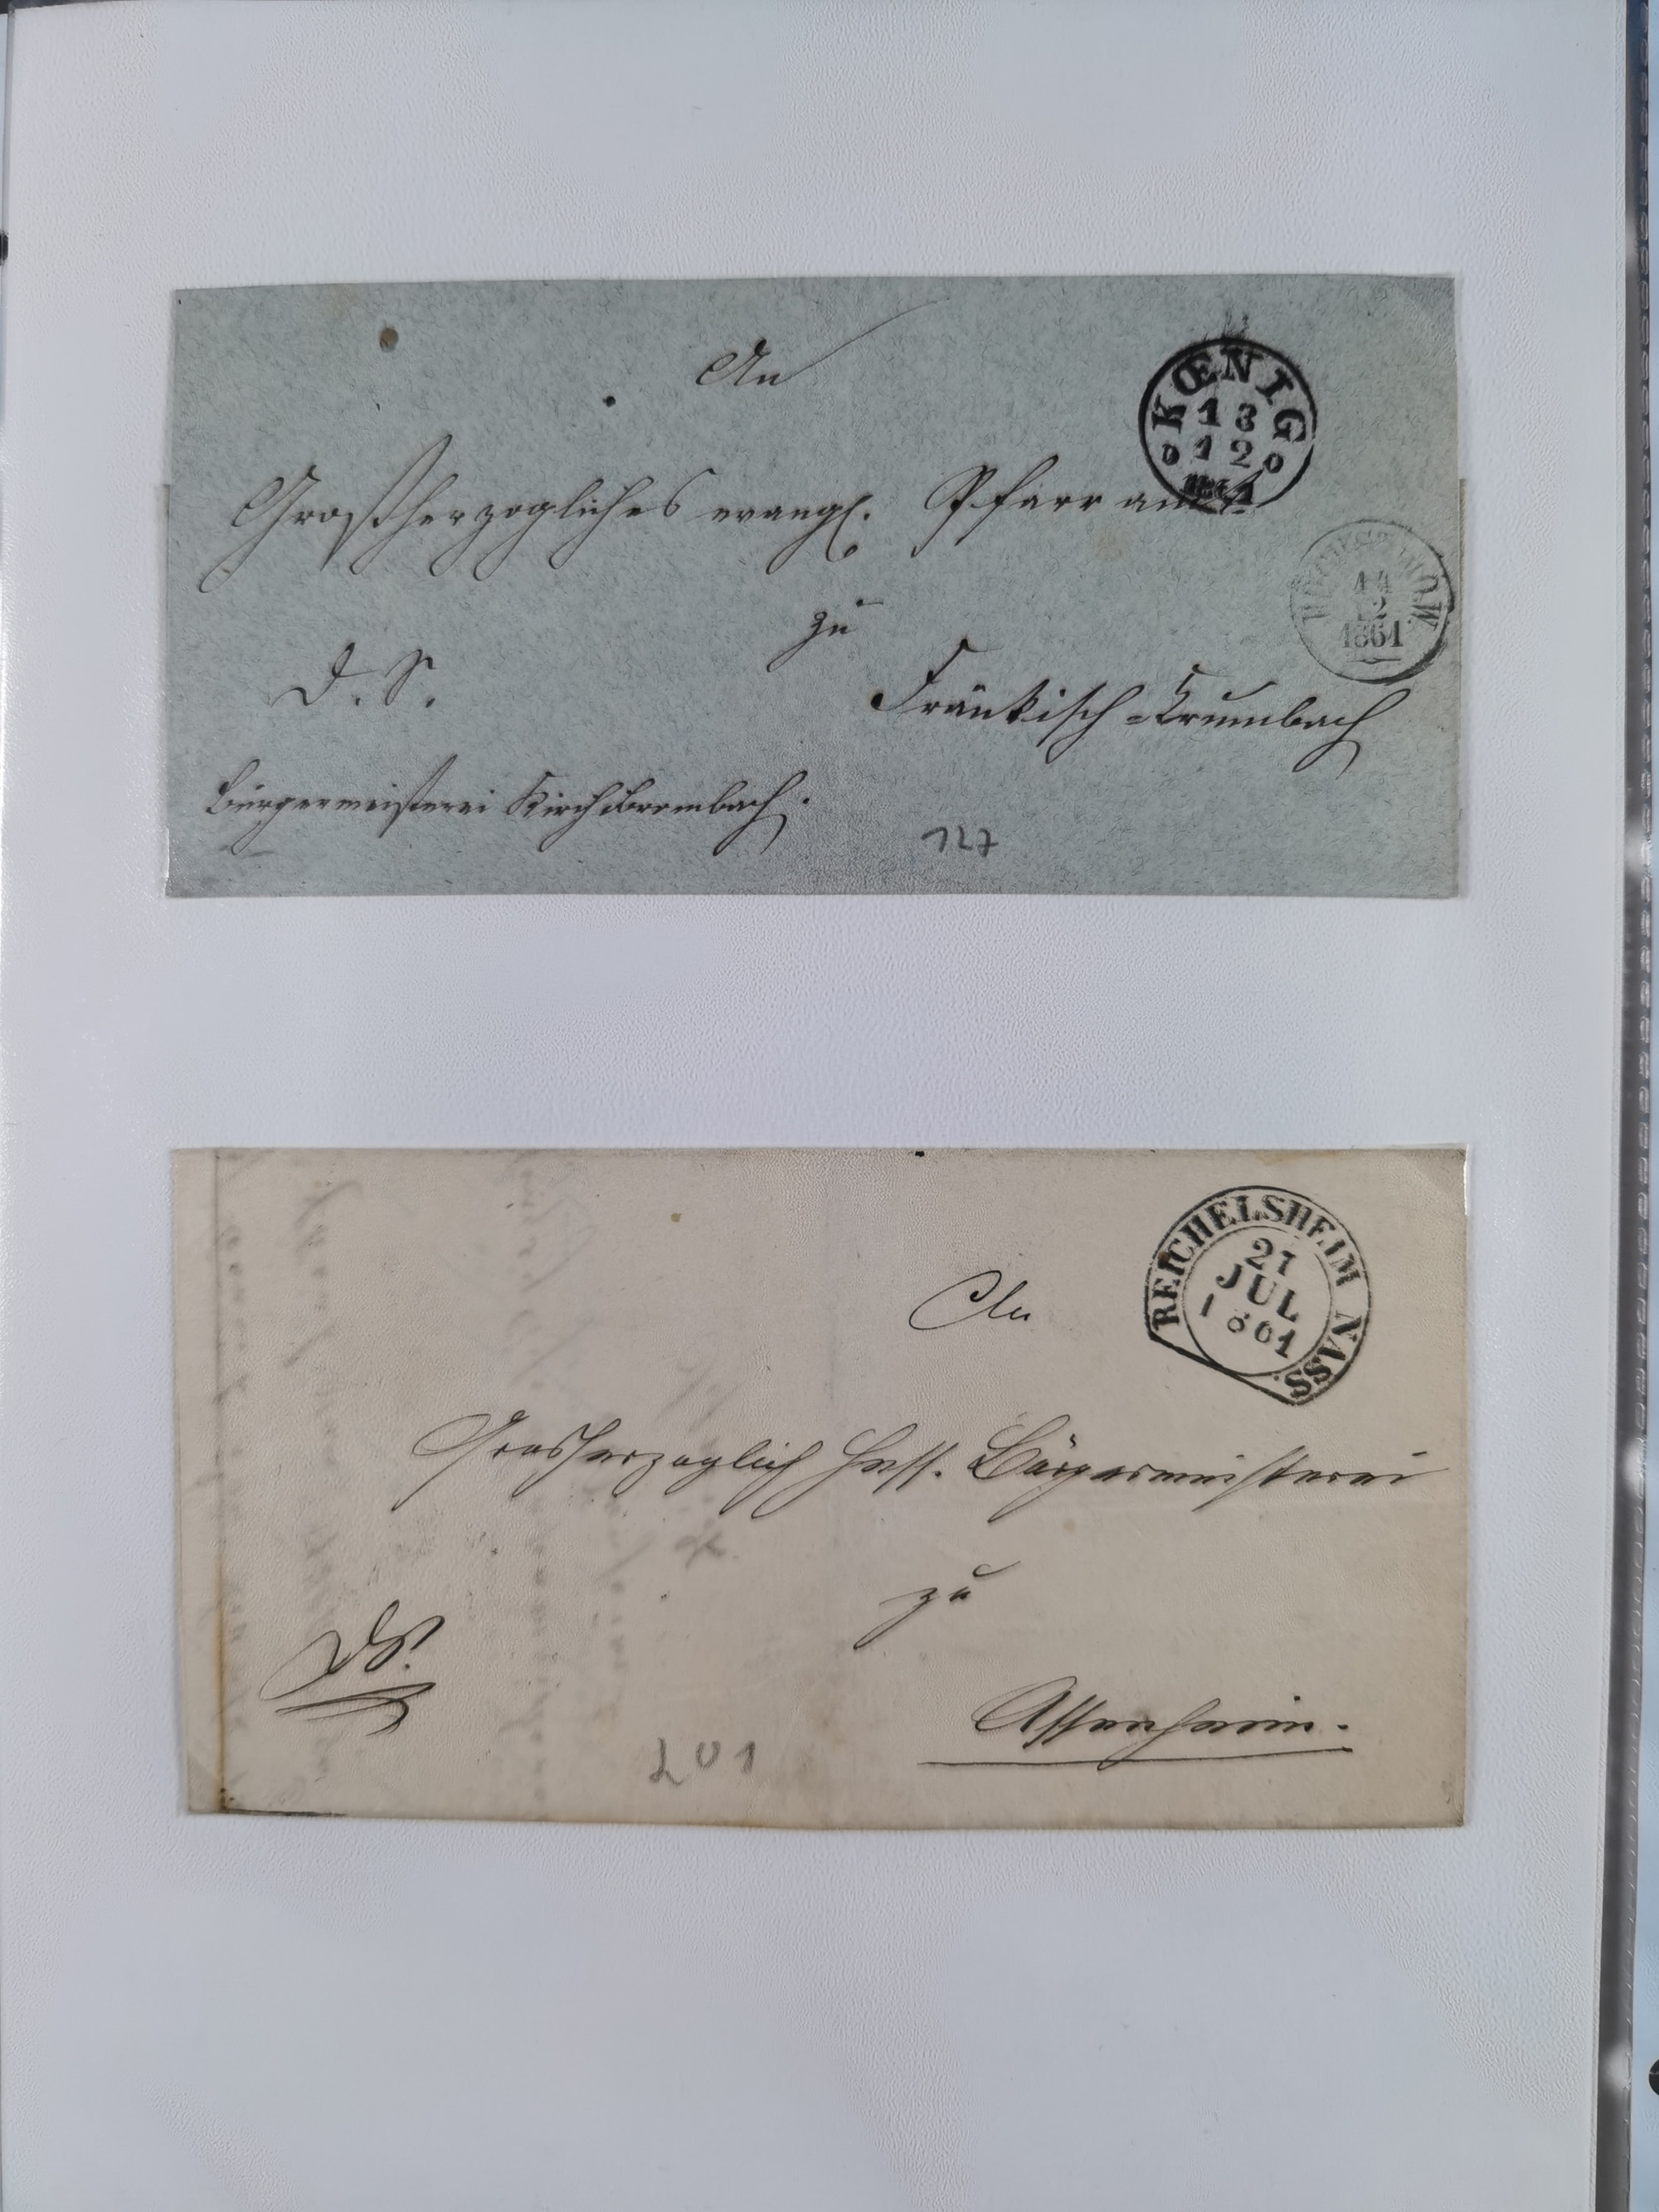 An
KŒNIG
13
12
Großherzogliches evangl. Pfarramt
14
12
1861
zu
D. S.
Fränkisch-Crumbach
Bürgermeisterei Kirchbrombach.
127
An
REICHELSHEIM NASS.
21
JUL
1861
Grosherzoglich Hess. Bürgermeisterei
zu
DS.
Assenheim.
201